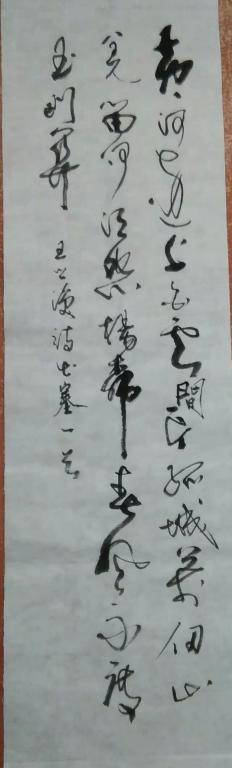 黄河遠上白雲間一片孤城萬仞山
羌笛何須怨楊柳春風不度
玉門關 王之渙詩出塞一首